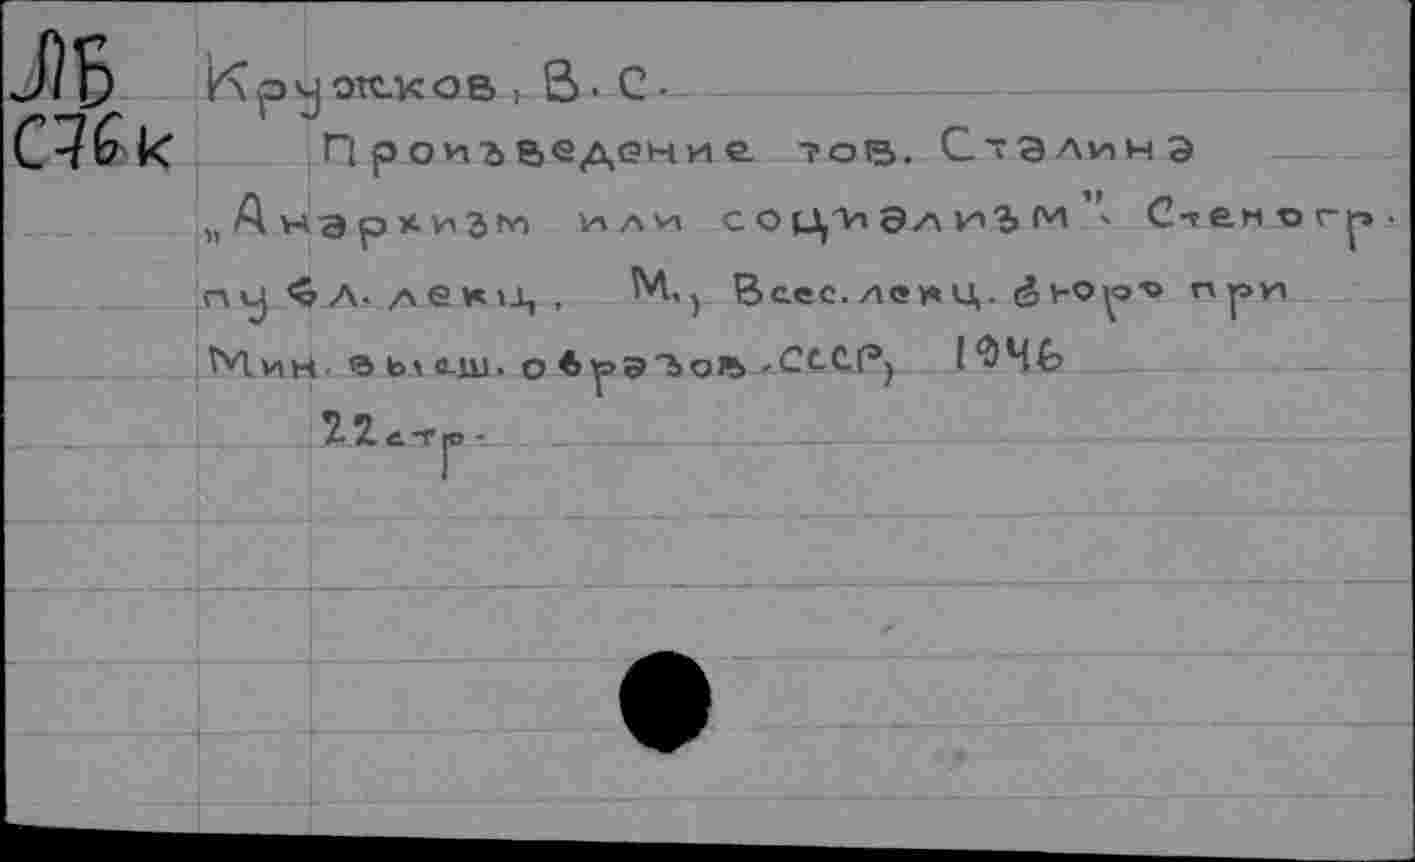 ЛБ
С76к
Кружков, В. С.
Произведение тов. Сталина
„Анархизм или социализм". Стеногр.
публ. лекц., М., Всес. лекц. бюро при
Мин. высш. образов. СССР, 1946
22 стр.